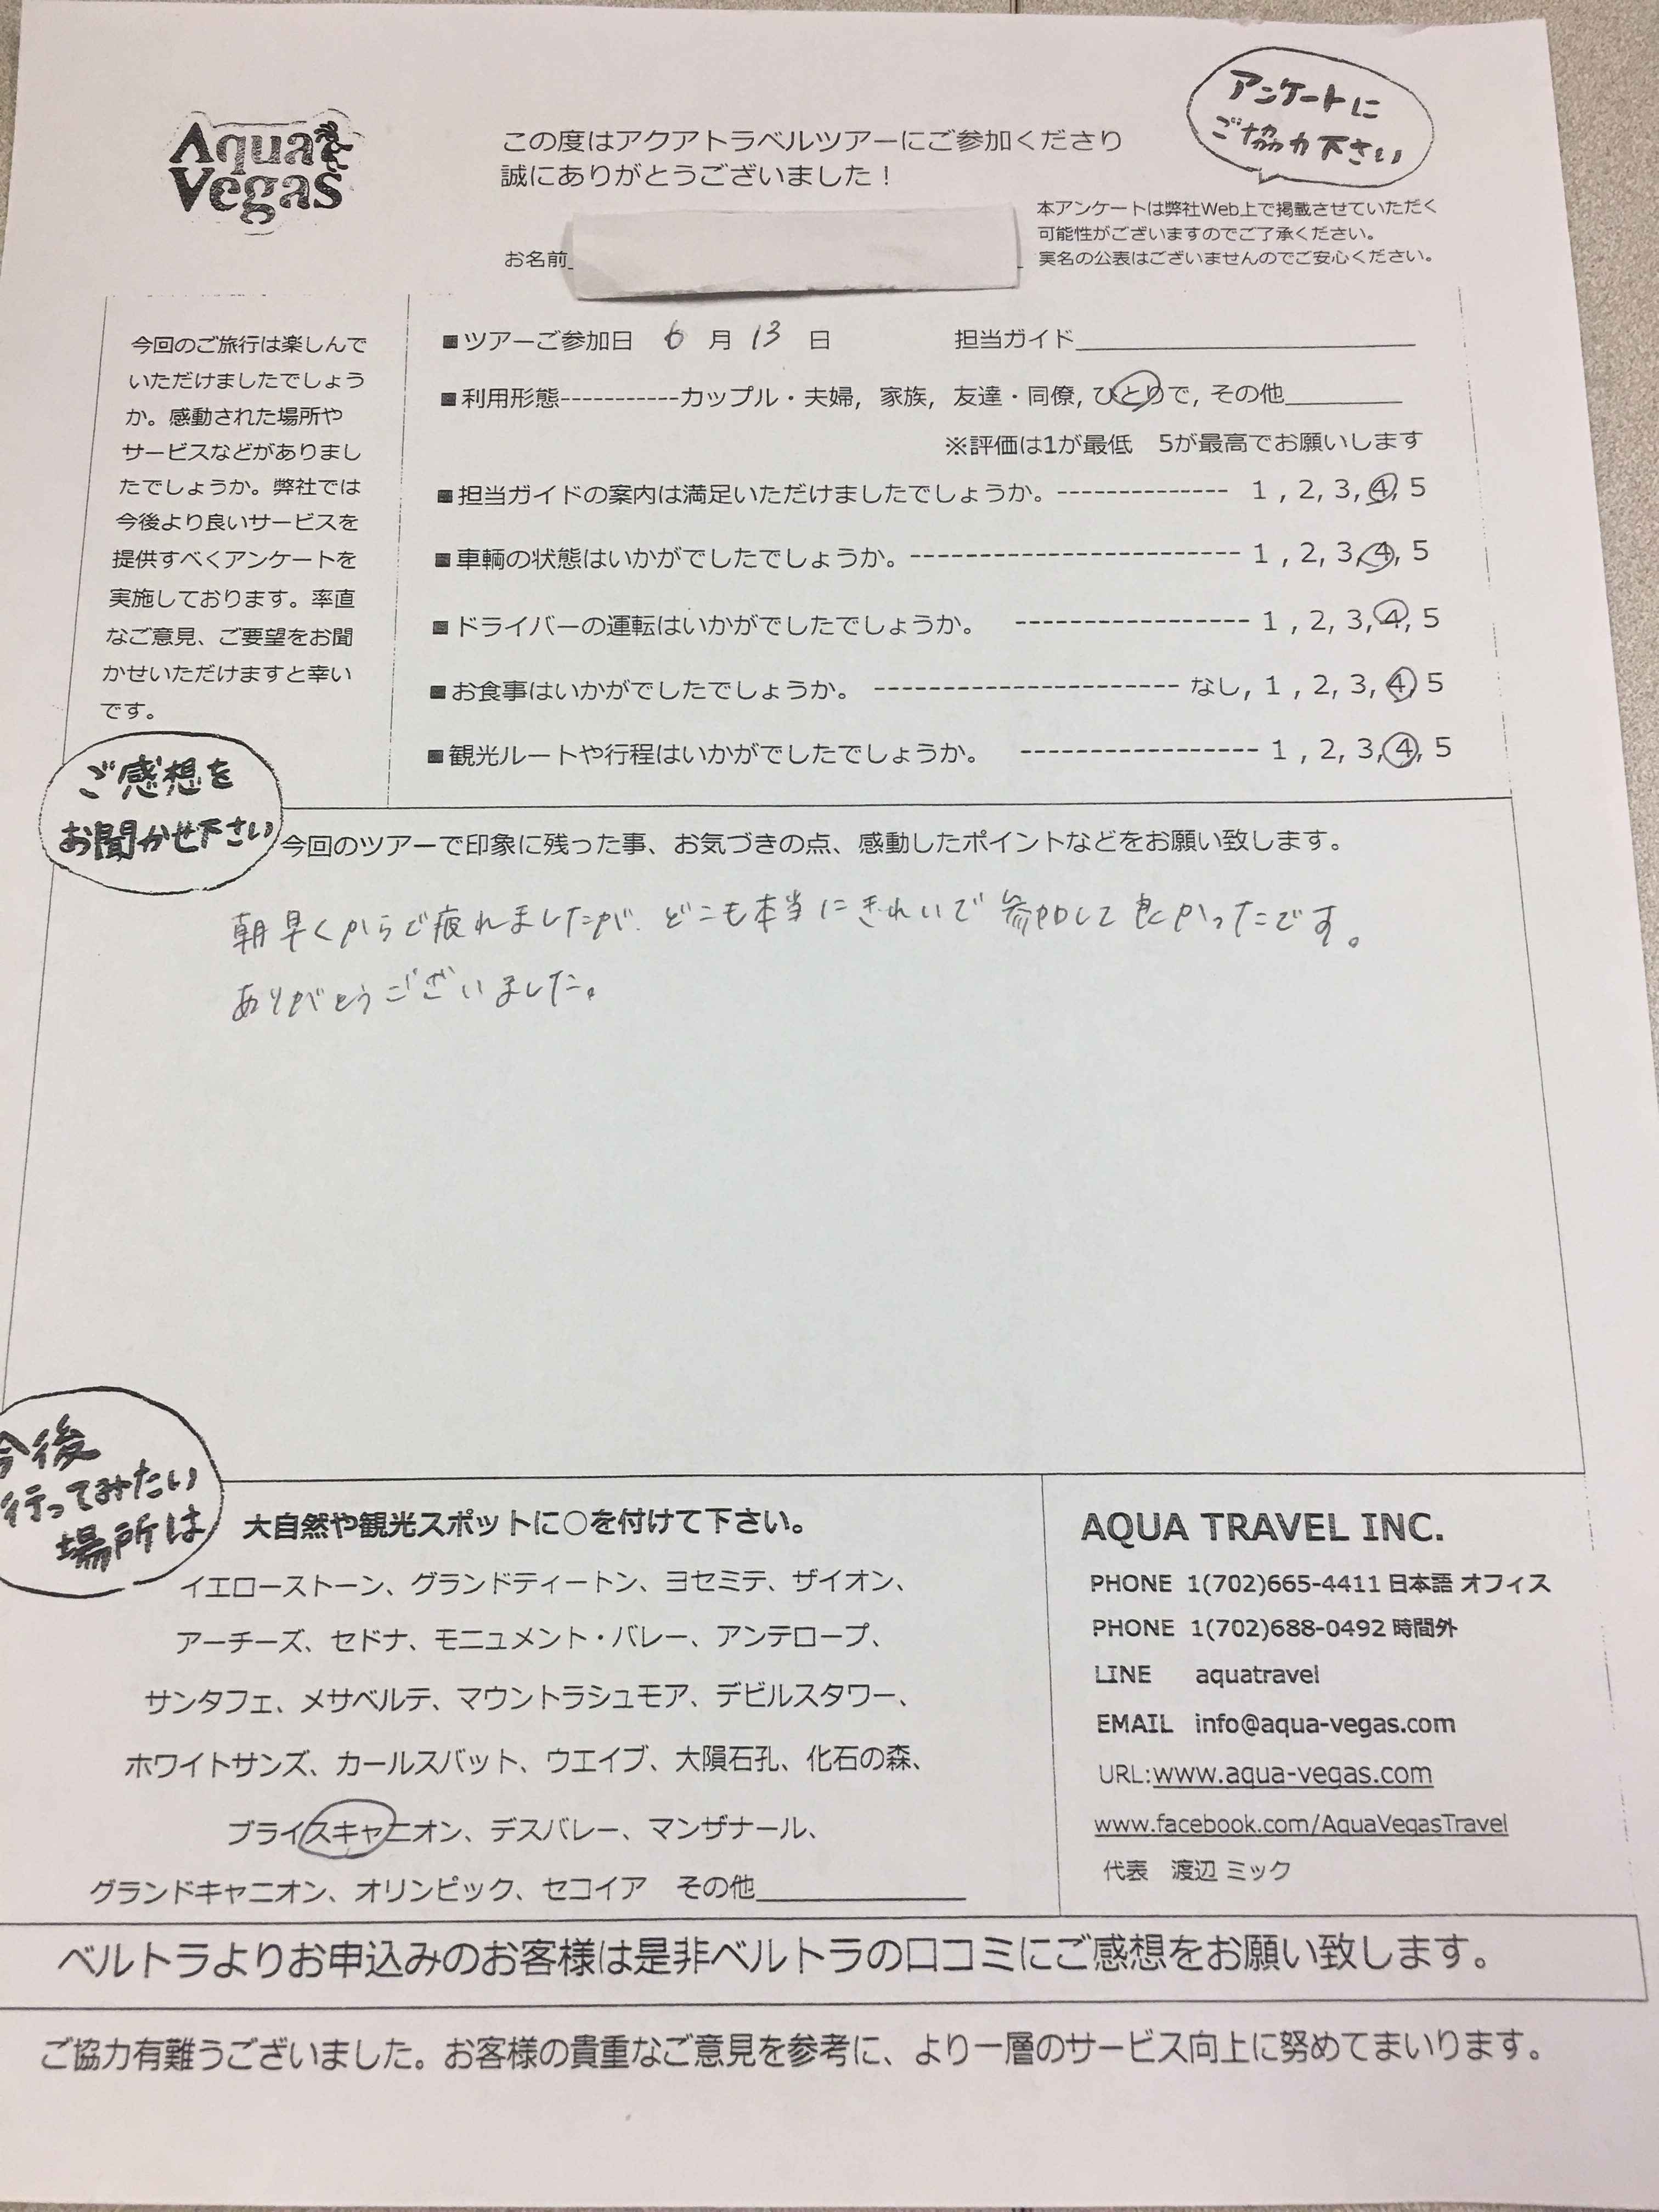 Aqua
Vegas
この度はアクアトラベルツアーにご参加くださり
誠にありがとうございました！
アンケートに
ご協力下さい
本アンケートは弊社Web上で掲載させていただく
可能性がございますのでご了承ください。
実名の公表はございませんのでご安心ください。
お名前
今回のご旅行は楽しんで
いただけましたでしょう
か。感動された場所や
サービスなどがありまし
たでしょうか。弊社では
今後より良いサービスを
提供すべくアンケートを
実施しております。率直
なご意見、ご要望をお聞
かせいただけますと幸い
です。
■ツアーご参加日 6 月 13 日 担当ガイド
■利用形態-----------カップル・夫婦, 家族, 友達・同僚, ひとりで, その他
※評価は1が最低 5が最高でお願いします
■担当ガイドの案内は満足いただけましたでしょうか。-------------- 1 , 2, 3, 4, 5
■車輌の状態はいかがでしたでしょうか。----------------------- 1 , 2, 3, 4, 5
■ドライバーの運転はいかがでしたでしょうか。 ----------------- 1 , 2, 3, 4, 5
■お食事はいかがでしたでしょうか。 ---------------------- なし, 1 , 2, 3, 4, 5
■観光ルートや行程はいかがでしたでしょうか。 ----------------- 1 , 2, 3, 4, 5
ご感想を
お聞かせ下さい
今回のツアーで印象に残った事、お気づきの点、感動したポイントなどをお願い致します。
朝早くからで疲れましたが、どこも本当にきれいで参加して良かったです。
ありがとうございました。
今後
行ってみたい
場所は
大自然や観光スポットに○を付けて下さい。
イエローストーン、グランドティートン、ヨセミテ、ザイオン、
アーチーズ、セドナ、モニュメント・バレー、アンテロープ、
サンタフェ、メサベルテ、マウントラシュモア、デビルスタワー、
ホワイトサンズ、カールスバット、ウエイブ、大隕石孔、化石の森、
ブライスキャニオン、デスバレー、マンザナール、
グランドキャニオン、オリンピック、セコイア その他
AQUA TRAVEL INC.
PHONE 1(702)665-4411 日本語 オフィス
PHONE 1(702)688-0492 時間外
LINE aquatravel
EMAIL info@aqua-vegas.com
URL:www.aqua-vegas.com
www.facebook.com/AquaVegasTravel
代表 渡辺 ミック
ベルトラよりお申込みのお客様は是非ベルトラの口コミにご感想をお願い致します。
ご協力有難うございました。お客様の貴重なご意見を参考に、より一層のサービス向上に努めてまいります。